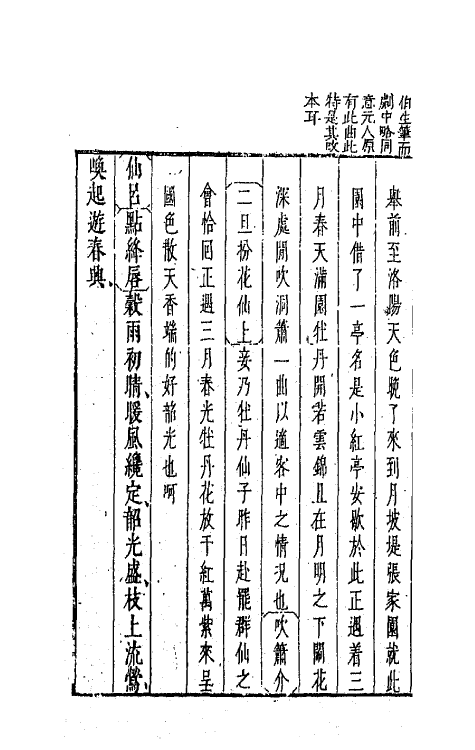 伯生筆而
劇中略同
意元人原
有此曲此
特是其改
本耳
舉前至洛陽天色晚了來到月坡堤張家園就此
園中借了一亭名是小紅亭安歇於此正遇着三
月春天滿園牡丹開若雲錦且在月明之下闌花
深處閒吹洞簫一曲以適客中之情況也吹簫介
二旦扮花仙上妾乃牡丹仙子昨日赴罷群仙之
會恰回正遇三月春光牡丹花放千紅萬紫來呈
國色散天香端的好韶光也呵
仙呂點絳唇穀雨初晴、暖風纔定、韶光盛、枝上流鶯、
喚起遊春興、